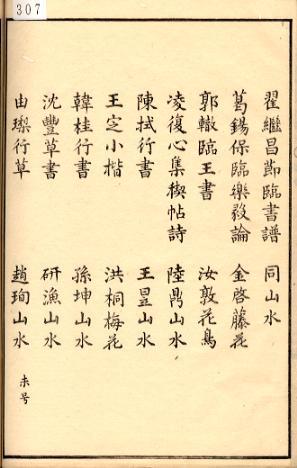 307
翟繼昌節臨書譜 同山水
葛錫保臨樂毅論 金啓藤花
郭轍臨王書 汝敦花鳥
凌復心集楔帖詩 陸鼎山水
陳拭行書 王昱山水
王定小楷 洪桐梅花
韓桂行書 孫坤山水
沈豐草書 研漁山水
由璨行草 趙珣山水
未号